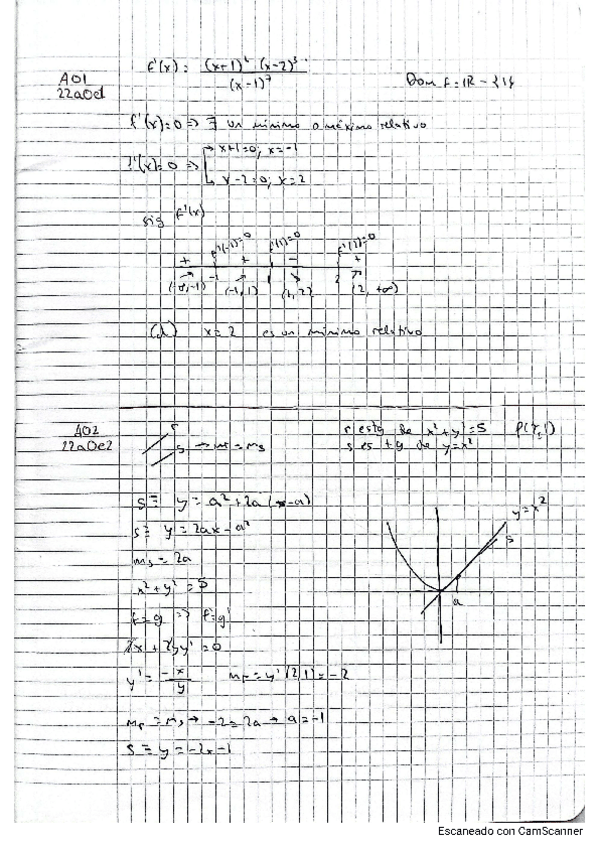 A01
22a0d
f'(x) = (x+1)⁴ · (x-2)³ / (x-1)⁷
Dom f = ℝ - {1}
f'(x)=0 => ∃ un mínimo o máximo relativo
f'(x)=0 => x+1=0; x=-1
x-2=0; x=2
sig f'(x)
f'(-1)=0 f'(1)=0 f'(2)=0
+ + - +
(-∞,-1) -1 (-1,1) 1 (1,2) 2 (2,+∞)
(d) x=2 es un mínimo relativo
A02
22a0e2
r
s → mr = ms
r es tg de x²+y²=5 P(2,1)
s es tg de y=x²
s ≡ y = a²+2a(x-a)
s ≡ y = 2ax-a²
ms = 2a
x²+y²=5
f=g => f'=g'
2x + 2yy' = 0
y' = -x/y mr = y'(2,1) = -2
mr = ms → -2=2a → a=-1
s ≡ y = -2x-1
y=x²
s
a
Escaneado con CamScanner